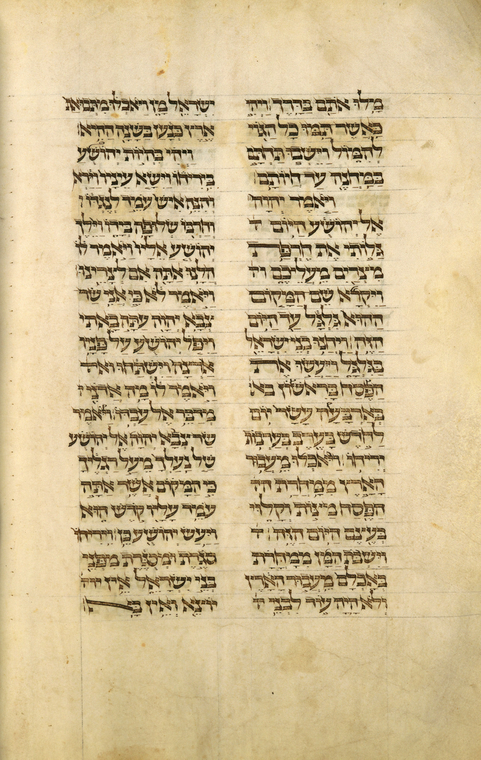 מילו אתם בדרך ויהי
כאשר תמו כל הגוי
להמול וישבו תחתם
במחנה עד חיותם
ויאמר יהוה
אל יהושע היום
גלותי את חרפת
מצרים מעליכם וי
ויקרא שם המקום
ההוא גלגל עד היום
הזה ויחנו בני ישראל
בגלגל ויעשו את
הפסח בראשון בא
בארבעה עשר יום
לחדש בערב בערבות
יריחו ויאכלו מעבור
הארץ ממחרת
הפסח מצות וקלוי
בעצם היום הזה
וישבת המן ממחרת
באכלם מעבור הארץ
ולא היה עוד לבני
ישראל מן ויאכלו מתבואת
ארץ כנען בשנה ההיא
ויהי בהיות יהושע
ביריחו וישא עיניו וירא
והנה איש עמד לנגדו
וחרבו שלופה בידו וילך
יהושע אליו ויאמר לו
הלנו אתה אם לצרינו
ויאמר לא כי אני שר
צבא יהוה עתה באתי
ויפל יהושע על פניו
ארצה וישתחו
ויאמר לו מה אדני
מדבר אל עבדו ויאמר
שר צבא יהוה אל יהושע
של נעלך מעל רגלך
כי המקום אשר אתה
עמד עליו קדש הוא
ויעש יהושע כן ויריחו
סגרת ומסגרת מפני
בני ישראל אין
יוצא ואין בא